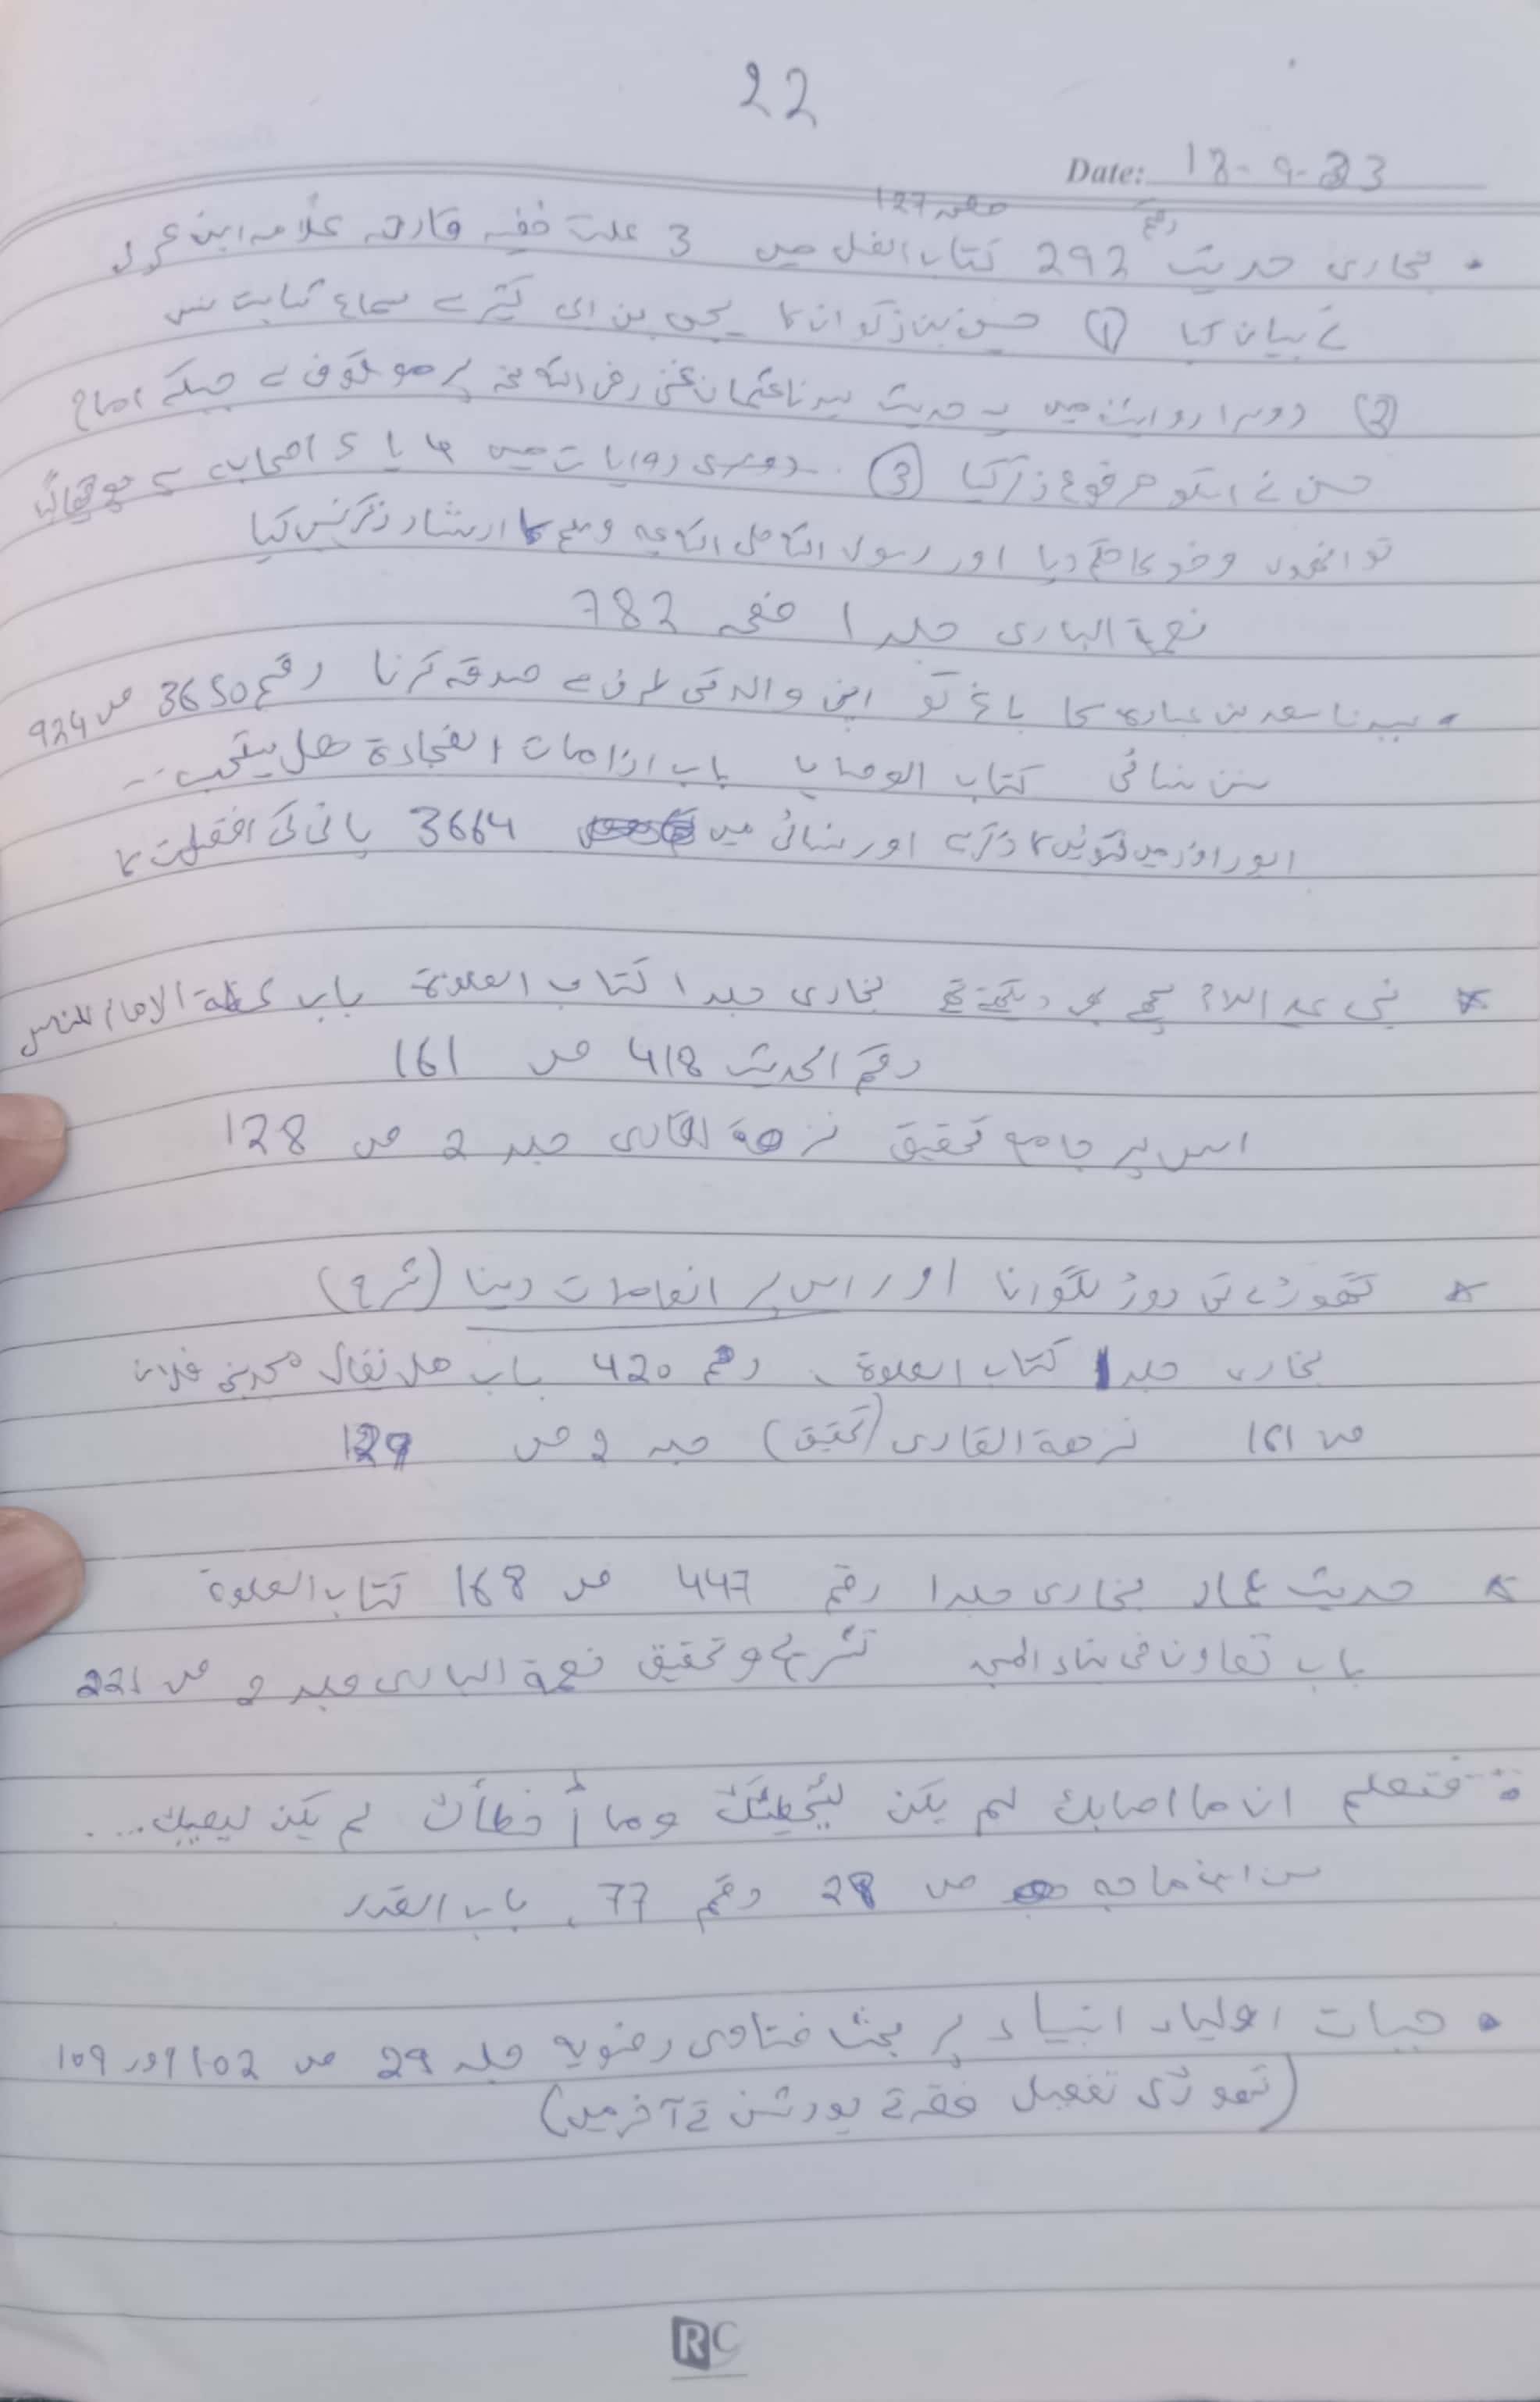 22
Date: 18-9-23
صفحہ 127
• بخاری حدیث رقم 292 کتاب الغسل میں 3 علت خفیہ قادحہ علامہ ابن عربی
نے بیان کیا ① حسین بن ذکوان کا یحیی بن ابی کثیر سے سماع ثابت نہیں
② دوسرا روایت میں یہ حدیث سیدنا عثمان غنی رضی اللہ عنہ پر موقوف ہے جبکہ امام
حسن نے اسکو مرفوع ذکر کیا ③ دوسری روایات میں 4 یا 5 اصحاب سے پوچھا گیا
تو انھوں وضو کا حکم دیا اور رسول اللہ صلی اللہ علیہ وسلم کا ارشاد ذکر نہیں کیا
نعمۃ الباری جلد 1 صفحہ 782
• سیدنا سعد بن عبادہ کا باغ کو اپنی والدہ کی طرف سے صدقہ کرنا رقم 3650 ص 924
سنن نسائی کتاب الوصایا باب اذا مات الفجاءۃ ھل یستحب ...
ابو داؤد میں کنویں کا ذکر ہے اور نسائی میں 3664 پانی کی افضلیت کا
* نبی علیہ السلام پیچھے بھی دیکھتے تھے بخاری جلد 1 کتاب الصلوۃ باب عظۃ الامام للناس
رقم الحدیث 418 ص 161
اس پر جامع تحقیق نزھۃ القاری جلد 2 ص 128
* گھوڑے کی دوڑ لگوانا اور اس پر انعامات دینا (شرح)
بخاری جلد 1 کتاب الصلوۃ، رقم 420 باب ھل یقال مسجد بنی فلان
ص 161 نزھۃ القاری (تحقیق) جلد 2 ص 129
* حدیث عمار بخاری جلد 1 رقم 447 ص 168 کتاب الصلوۃ
باب تعاون فی بناء المسجد تشریح و تحقیق نعمۃ الباری جلد 2 ص 221
فتعلم ان ما اصابك لم یکن لیُخطِئَكَ وما أخطأك لم یکن لیصیبك....
سنن ابن ماجہ ص 28 رقم 77، باب القدر
• حیات اولیاء انبیاء پر بحث فتاوی رضویہ جلد 29 ص 102 اور 109
(تھوڑی تفصیل فقہ کے پورشن کے آخر میں)
RC